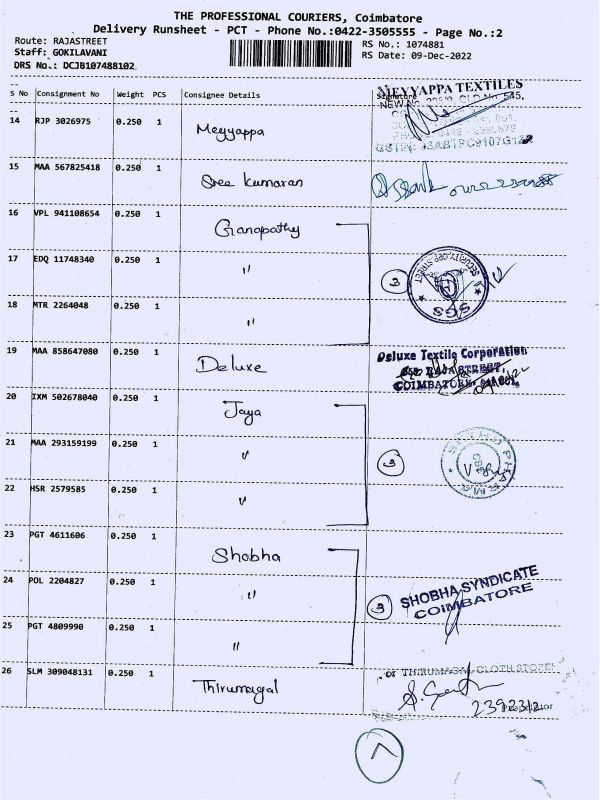 THE PROFESSIONAL COURIERS, Coimbatore
Delivery Runsheet - PCT - Phone No.:0422-3505555 - Page No.:2
Route: RAJASTREET
Staff: GOKILAVANI
DRS No.: DCJB107488102
RS No.: 1074881
RS Date: 09-Dec-2022
S No Consignment No Weight PCS Consignee Details Signature
14 RJP 3026975 0.250 1 Meyyappa
MEYYAPPA TEXTILES
15 MAA 567825418 0.250 1 Sree Kumaran
16 VPL 941108654 0.250 1 Ganapathy
17 EDQ 11748340 0.250 1 〃 3
SECURITY OPP STREET
SGS
18 MTR 2264048 0.250 1 〃
19 MAA 858647080 0.250 1 Deluxe
Deluxe Textile Corporation
RAJA STREET,
COIMBATORE
20 IXM 502678040 0.250 1 Jaya
21 MAA 293159199 0.250 1 〃 3
22 HSR 2579585 0.250 1 〃
23 PGT 4611606 0.250 1 Shobha
24 POL 2204827 0.250 1 〃 3
SHOBHA SYNDICATE
COIMBATORE
25 PGT 4809990 0.250 1 〃
26 SLM 309048131 0.250 1 Thirumagal
THIRUMAGAL CLOTH STORES